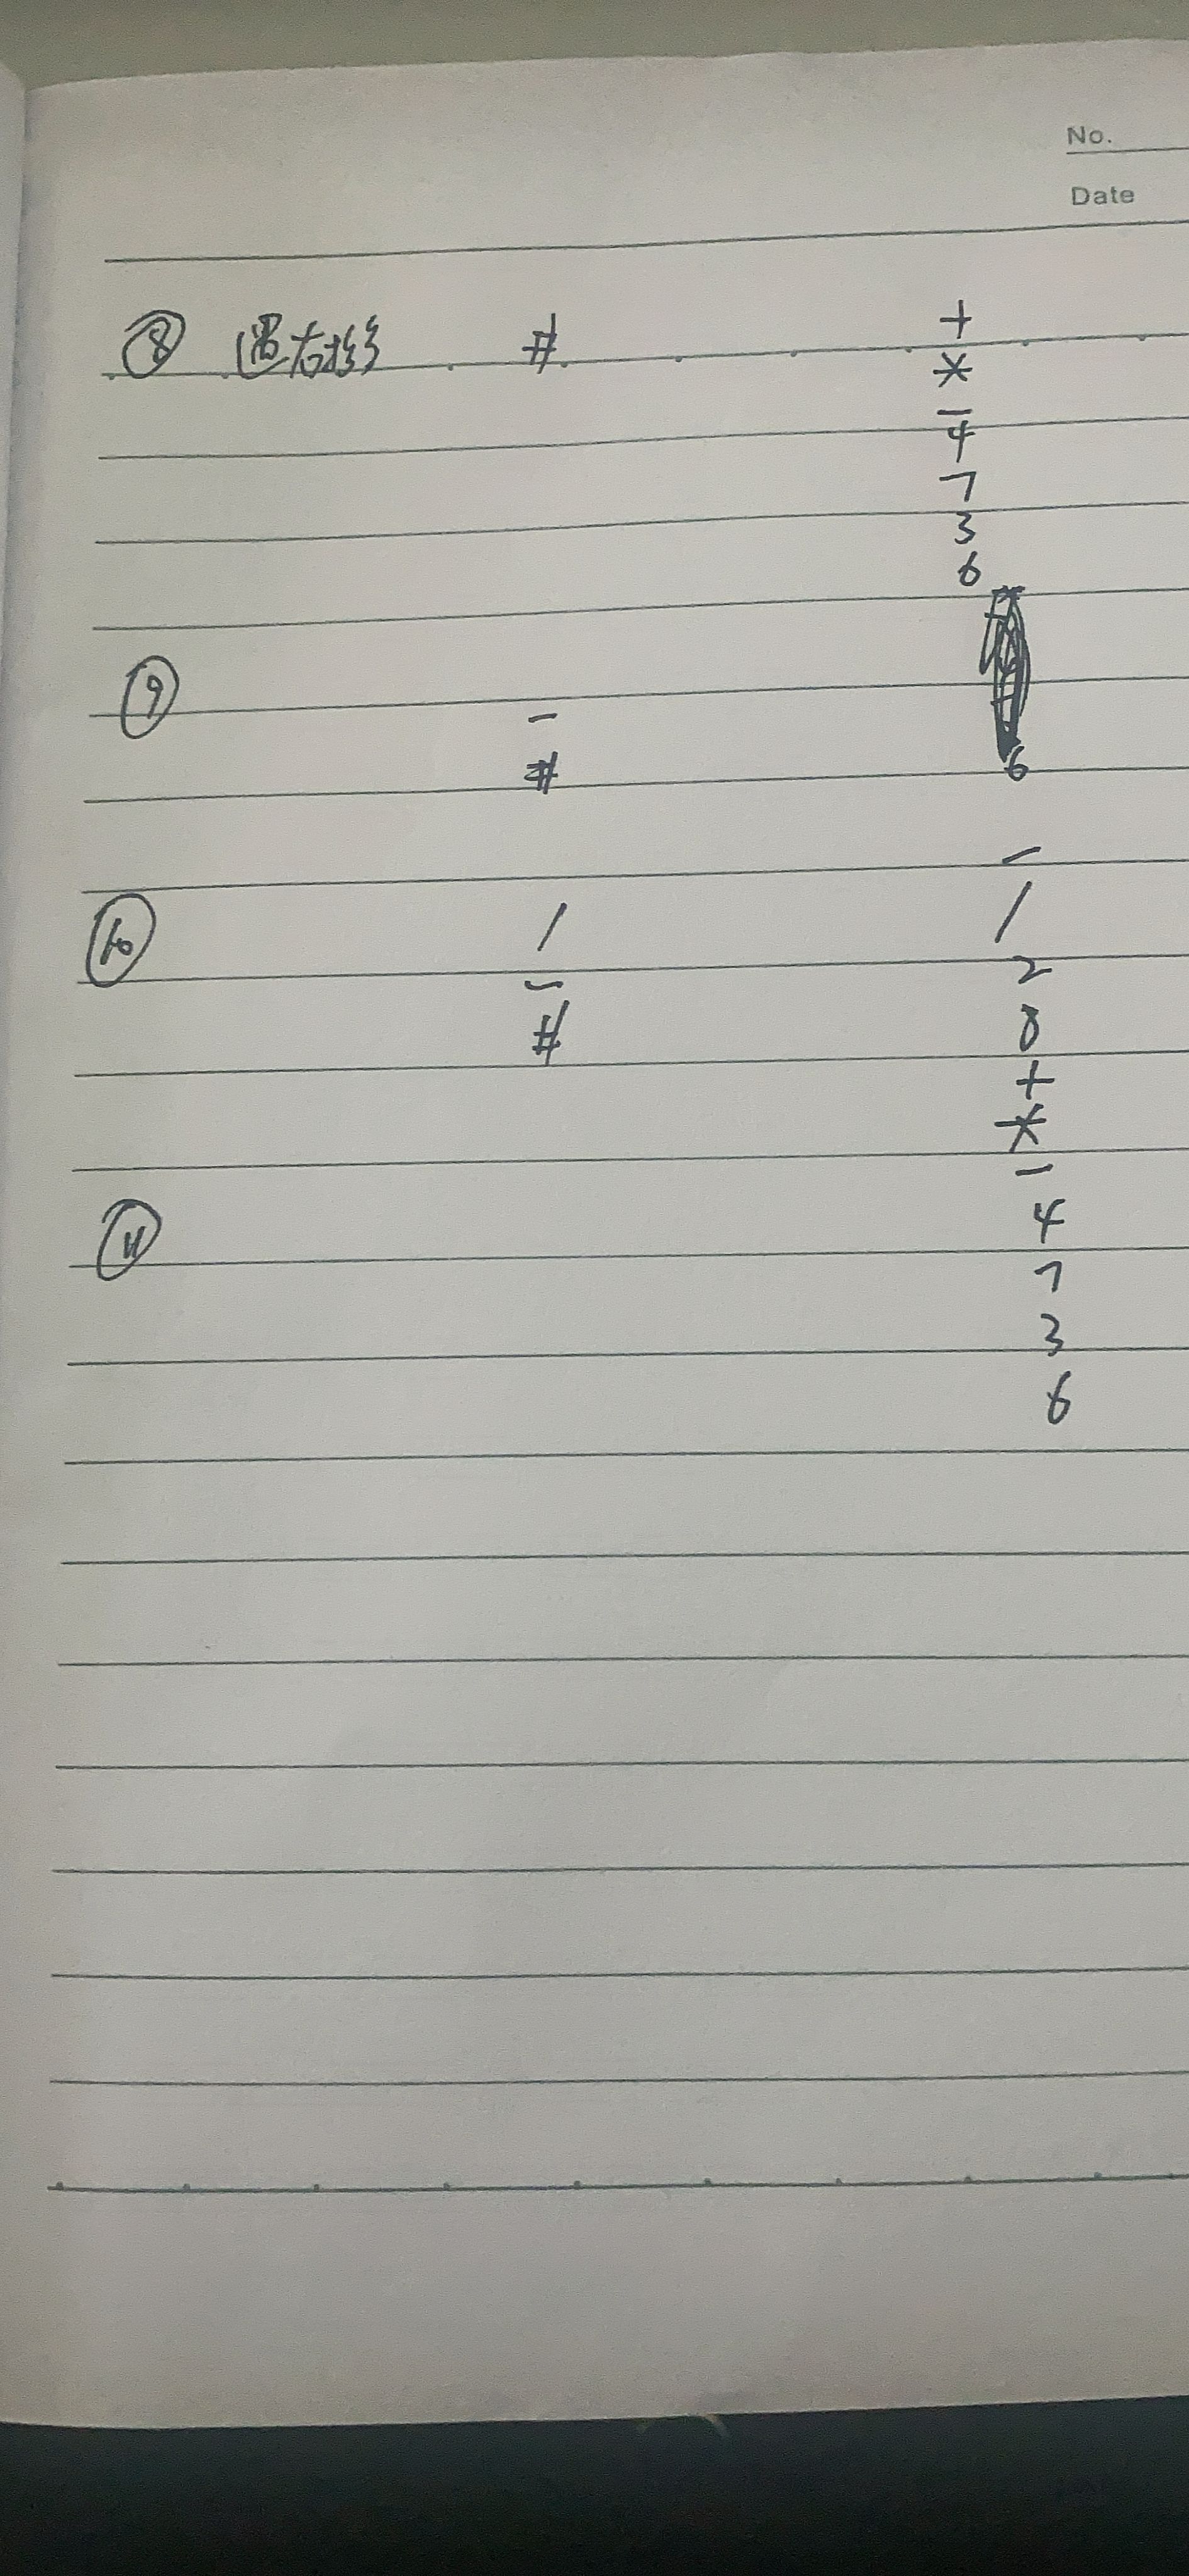 No.
Date
⑧ 遇右移 # +
*
-
4
7
3
6
⑨ -
# 6
-
⑩ / /
- 2
# 8
+
*
-
⑪ 4
7
3
6